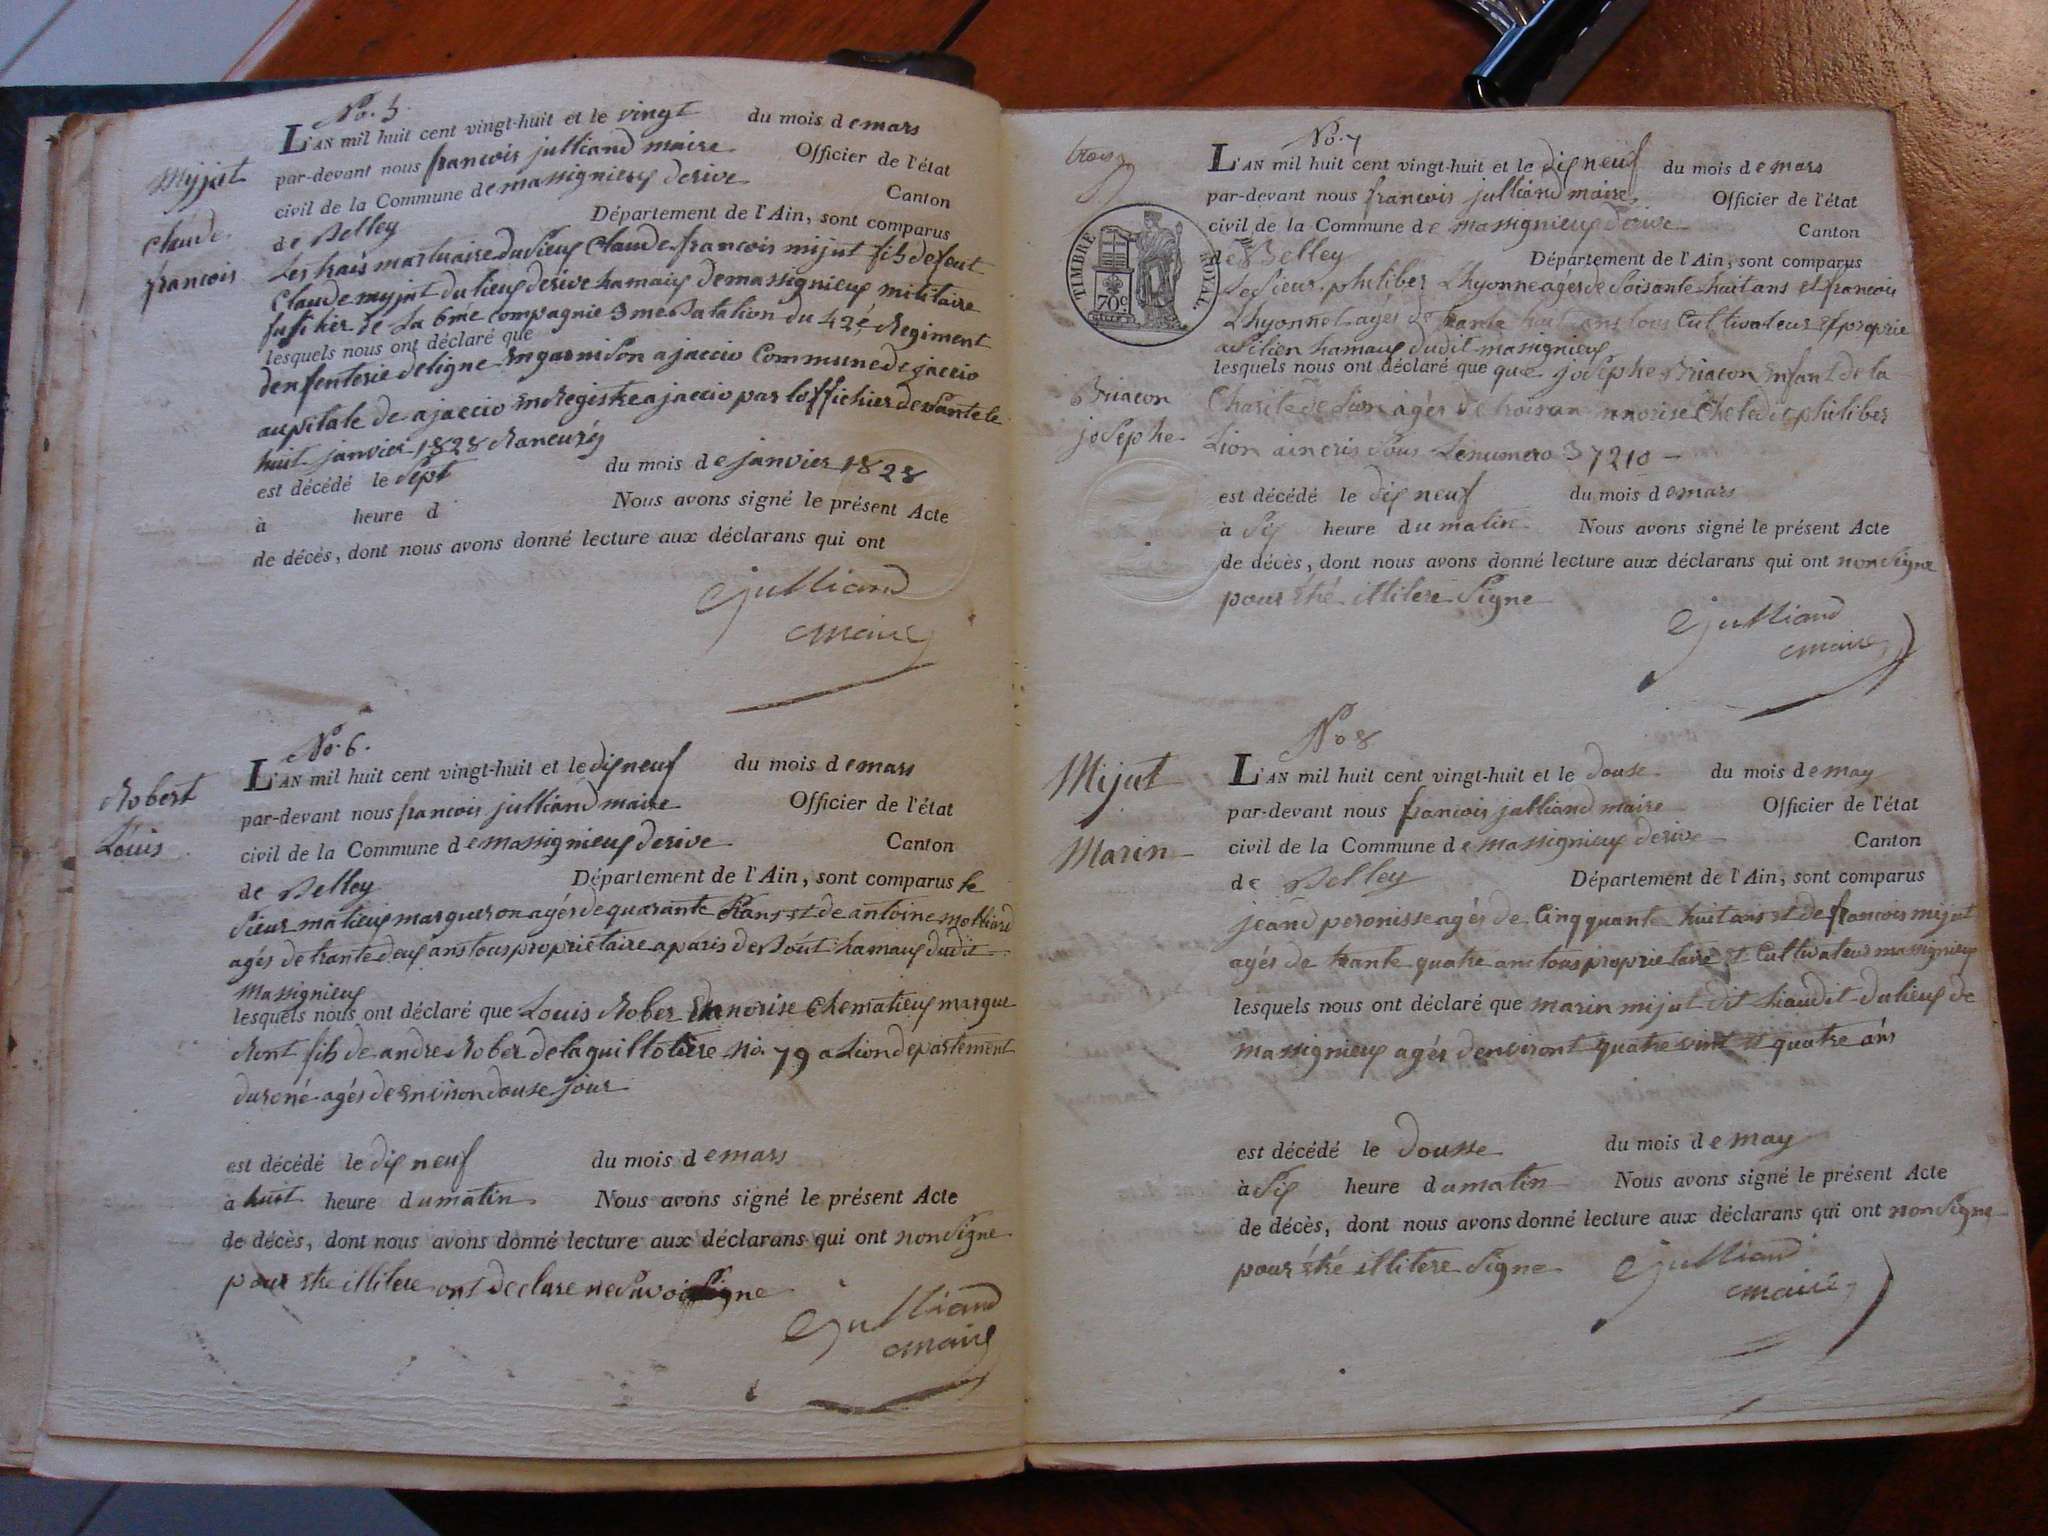 No. 5.
L'AN mil huit cent vingt-huit et le vingt du mois de mars
par-devant nous francois julliand maire Officier de l'état
civil de la Commune de massignieux derive Canton
de Belley Département de l'Ain, sont comparus
Myjat
Claude
francois
Les trais martuaire du sieur Claude francois mijat fils de feut
Claude myjat du lieux derive hamaux de massignieux militaire
fusiher de la 6me compagnie 3me Batalion du 42e Regiment
lesquels nous ont déclaré que
denfenterie deligne en garnison ajaccio Commune dejaccio
aupitale de ajaccio enregistre ajaccio par loffichier de sante le
huit janvier 1828
est décédé le sept du mois de janvier 1828
à heure d Nous avons signé le présent Acte
de décès, dont nous avons donné lecture aux déclarans qui ont
julliand
maire
No. 6.
L'AN mil huit cent vingt-huit et le dix neuf du mois de mars
par-devant nous francois julliand maire Officier de l'état
civil de la Commune de massignieux derive Canton
de Belley Département de l'Ain, sont comparus le
Robert
Louis
sieur matieux margueron agés de quarante ans et de antoine molliard
agés de trante deux ans tous proprietaire aparis hamaux dudit
Massignieux
lesquels nous ont déclaré que Louis Rober en norise che matieux margue
ront fils de andre Rober de la guillotiere No. 79 a Lion departement
du roné agés de environ douse jour
est décédé le dix neuf du mois de mars
à huit heure du matin Nous avons signé le présent Acte
de décès, dont nous avons donné lecture aux déclarans qui ont non signe
pour etre illitere ont declare ne savoi signe
julliand
maire
No. 7
L'AN mil huit cent vingt-huit et le dix neuf du mois de mars
par-devant nous francois julliand maire Officier de l'état
civil de la Commune de massignieux derive Canton
de Belley Département de l'Ain, sont comparus
trois
TIMBRE ROYAL
70c
Le sieur philiber Lhyonne agés de soisante huit ans et francois
Lhyonnet agés de trante huit ans tous Cultivateur et proprie
hamaux dudit massignieux
lesquels nous ont déclaré que que josephe Briacon enfant de la
Briacon
josephe
Charite de Lion agés de trois an en norise Che ledit philiber
Lion aincris sous Lenumero 37210 —
est décédé le dix neuf du mois de mars
à six heure du matin Nous avons signé le présent Acte
de décès, dont nous avons donné lecture aux déclarans qui ont non signe
pour etré illitere signe
julliand
maire
No 8
L'AN mil huit cent vingt-huit et le douse du mois de may
par-devant nous francois julliand maire Officier de l'état
civil de la Commune de massignieux derive Canton
de Belley Département de l'Ain, sont comparus
Mijat
Marin
jeand peronisse agés de Cinqquante huit ans et de francois mijat
agés de trante quatre ans tous proprietaire et Cultivateur massignieux
lesquels nous ont déclaré que marin mijat dit Liaudit du lieux de
massignieux agés denviront quatre vint et quatre ans
est décédé le dousse du mois de may
à six heure du matin Nous avons signé le présent Acte
de décès, dont nous avons donné lecture aux déclarans qui ont non signe
pour étré illitere signe
julliand
maire